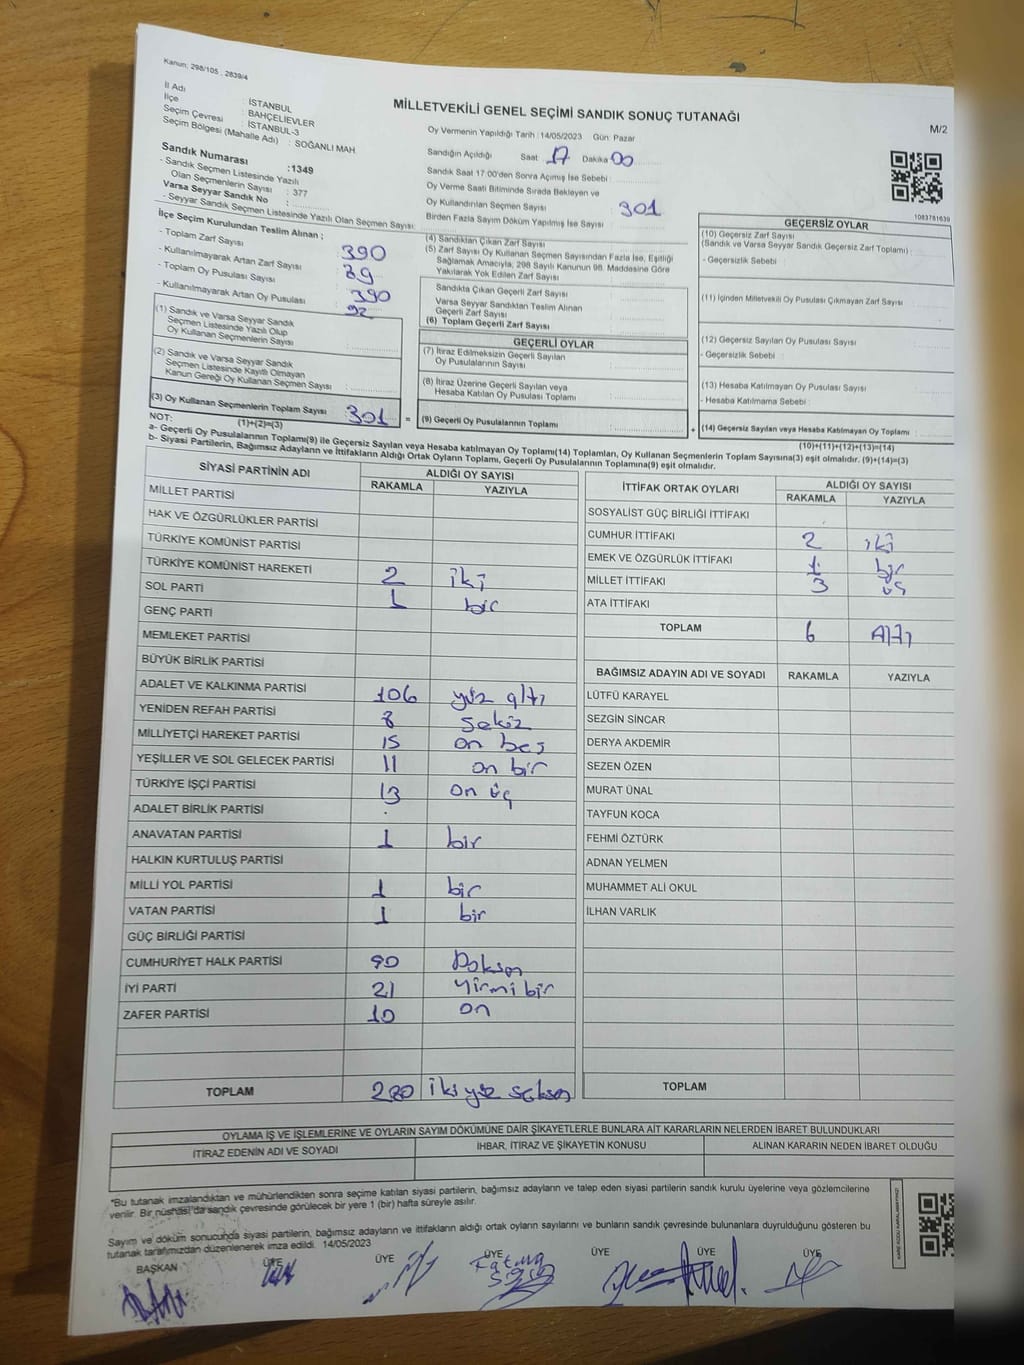 Kanun; 298/105 , 2839/4
MİLLETVEKİLİ GENEL SEÇİMİ SANDIK SONUÇ TUTANAĞI
M/2
İl Adı : İSTANBUL
İlçe : BAHÇELİEVLER
Seçim Çevresi : İSTANBUL-3
Seçim Bölgesi (Mahalle Adı) : SOĞANLI MAH
Sandık Numarası :1349
- Sandık Seçmen Listesinde Yazılı
Olan Seçmenlerin Sayısı : 377
Varsa Seyyar Sandık No :
- Seyyar Sandık Seçmen Listesinde Yazılı Olan Seçmen Sayısı:
Oy Vermenin Yapıldığı Tarih : 14/05/2023 Gün: Pazar
Sandığın Açıldığı Saat 17 Dakika 00
Sandık Saat 17 00'den Sonra Açımış İse Sebebi :
Oy Verme Saati Bitiminde Sırada Bekleyen ve
Oy Kullandırılan Seçmen Sayısı : 301
Birden Fazla Sayım Döküm Yapılmış İse Sayısı :
1083781639
İlçe Seçim Kurulundan Teslim Alınan ;
- Toplam Zarf Sayısı : 390
- Kullanılmayarak Artan Zarf Sayısı : 89
- Toplam Oy Pusulası Sayısı : 390
- Kullanılmayarak Artan Oy Pusulası : 92
(1) Sandık ve Varsa Seyyar Sandık
Seçmen Listesinde Yazılı Olup
Oy Kullanan Seçmenlerin Sayısı :
(2) Sandık ve Varsa Seyyar Sandık
Seçmen Listesinde Kayıtlı Olmayan
Kanun Gereği Oy Kullanan Seçmen Sayısı :
(3) Oy Kullanan Seçmenlerin Toplam Sayısı : 301 =
(1)+(2)=(3)
(4) Sandıktan Çıkan Zarf Sayısı
(5) Zarf Sayısı Oy Kullanan Seçmen Sayısından Fazla İse, Eşitliği
Sağlamak Amacıyla; 298 Sayılı Kanunun 98. Maddesine Göre
Yakılarak Yok Edilen Zarf Sayısı
Sandıkta Çıkan Geçerli Zarf Sayısı :
Varsa Seyyar Sandıktan Teslim Alınan
Geçerli Zarf Sayısı :
(6) Toplam Geçerli Zarf Sayısı :
GEÇERLİ OYLAR
(7) İtiraz Edilmeksizin Geçerli Sayılan
Oy Pusulalarının Sayısı :
(8) İtiraz Üzerine Geçerli Sayılan veya
Hesaba Katılan Oy Pusulası Toplamı :
(9) Geçerli Oy Pusulalarının Toplamı : +
GEÇERSİZ OYLAR
(10) Geçersiz Zarf Sayısı
(Sandık ve Varsa Seyyar Sandık Geçersiz Zarf Toplamı) :
- Geçersizlik Sebebi :
(11) İçinden Milletvekili Oy Pusulası Çıkmayan Zarf Sayısı :
(12) Geçersiz Sayılan Oy Pusulası Sayısı :
- Geçersizlik Sebebi :
(13) Hesaba Katılmayan Oy Pusulası Sayısı :
- Hesaba Katılmama Sebebi :
(14) Geçersiz Sayılan veya Hesaba Katılmayan Oy Toplamı :
(10)+(11)+(12)+(13)=(14)
NOT:
a- Geçerli Oy Pusulalarının Toplamı(9) ile Geçersiz Sayılan veya Hesaba katılmayan Oy Toplamı(14) Toplamları, Oy Kullanan Seçmenlerin Toplam Sayısına(3) eşit olmalıdır. (9)+(14)=(3)
b- Siyasi Partilerin, Bağımsız Adayların ve İttifakların Aldığı Ortak Oyların Toplamı, Geçerli Oy Pusulalarının Toplamına(9) eşit olmalıdır.
SİYASİ PARTİNİN ADI ALDIĞI OY SAYISI
RAKAMLA YAZIYLA
MİLLET PARTİSİ
HAK VE ÖZGÜRLÜKLER PARTİSİ
TÜRKİYE KOMÜNİST PARTİSİ
TÜRKİYE KOMÜNİST HAREKETİ 2 iki
SOL PARTİ 1 bir
GENÇ PARTİ
MEMLEKET PARTİSİ
BÜYÜK BİRLİK PARTİSİ
ADALET VE KALKINMA PARTİSİ 106 yüz altı
YENİDEN REFAH PARTİSİ 8 sekiz
MİLLİYETÇİ HAREKET PARTİSİ 15 on beş
YEŞİLLER VE SOL GELECEK PARTİSİ 11 on bir
TÜRKİYE İŞÇİ PARTİSİ 13 on üç
ADALET BİRLİK PARTİSİ
ANAVATAN PARTİSİ 1 bir
HALKIN KURTULUŞ PARTİSİ
MİLLİ YOL PARTİSİ 1 bir
VATAN PARTİSİ 1 bir
GÜÇ BİRLİĞİ PARTİSİ
CUMHURİYET HALK PARTİSİ 90 Doksan
İYİ PARTİ 21 Yirmi bir
ZAFER PARTİSİ 10 on
TOPLAM 280 İki yüz seksen
İTTİFAK ORTAK OYLARI ALDIĞI OY SAYISI
RAKAMLA YAZIYLA
SOSYALİST GÜÇ BİRLİĞİ İTTİFAKI
CUMHUR İTTİFAKI 2 iki
EMEK VE ÖZGÜRLÜK İTTİFAKI 1 bir
MİLLET İTTİFAKI 3 üç
ATA İTTİFAKI
TOPLAM 6 Altı
BAĞIMSIZ ADAYIN ADI VE SOYADI RAKAMLA YAZIYLA
LÜTFÜ KARAYEL
SEZGİN SİNCAR
DERYA AKDEMİR
SEZEN ÖZEN
MURAT ÜNAL
TAYFUN KOCA
FEHMİ ÖZTÜRK
ADNAN YELMEN
MUHAMMET ALİ OKUL
İLHAN VARLIK
TOPLAM
OYLAMA İŞ VE İŞLEMLERİNE VE OYLARIN SAYIM DÖKÜMÜNE DAİR ŞİKAYETLERLE BUNLARA AİT KARARLARIN NELERDEN İBARET BULUNDUKLARI
İTİRAZ EDENİN ADI VE SOYADI İHBAR, İTİRAZ VE ŞİKAYETİN KONUSU ALINAN KARARIN NEDEN İBARET OLDUĞU
*Bu tutanak imzalandıktan ve mühürlendikten sonra seçime katılan siyasi partilerin, bağımsız adayların ve talep eden siyasi partilerin sandık kurulu üyelerine veya gözlemcilerine
verilir. Bir nüshası da sandık çevresinde görülecek bir yere 1 (bir) hafta süreyle asılır.
Sayım ve döküm sonucunda siyasi partilerin, bağımsız adayların ve ittifakların aldığı ortak oyların sayılarını ve bunların sandık çevresinde bulunanlara duyrulduğunu gösteren bu
tutanak tarafımızdan düzenlenerek imza edildi. 14/05/2023
BAŞKAN ÜYE ÜYE ÜYE ÜYE ÜYE ÜYE
Fatma